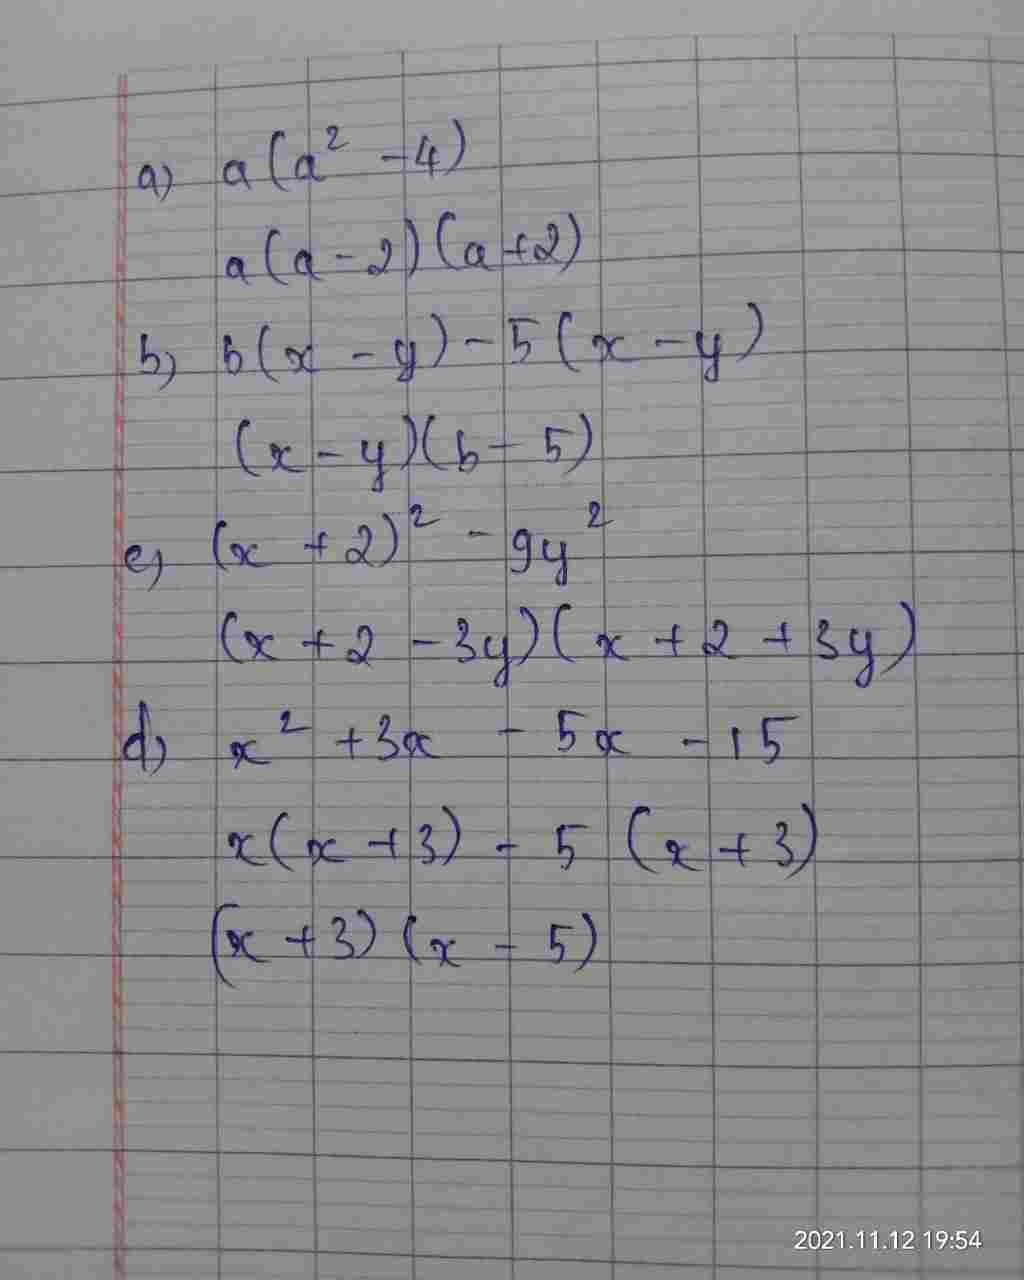 a) a(a² - 4)
a(a - 2)(a + 2)
b) b(x - y) - 5(x - y)
(x - y)(b - 5)
c) (x + 2)² - 9y²
(x + 2 - 3y)(x + 2 + 3y)
d) x² + 3x - 5x - 15
x(x + 3) - 5 (x + 3)
(x + 3) (x - 5)
2021.11.12 19:54